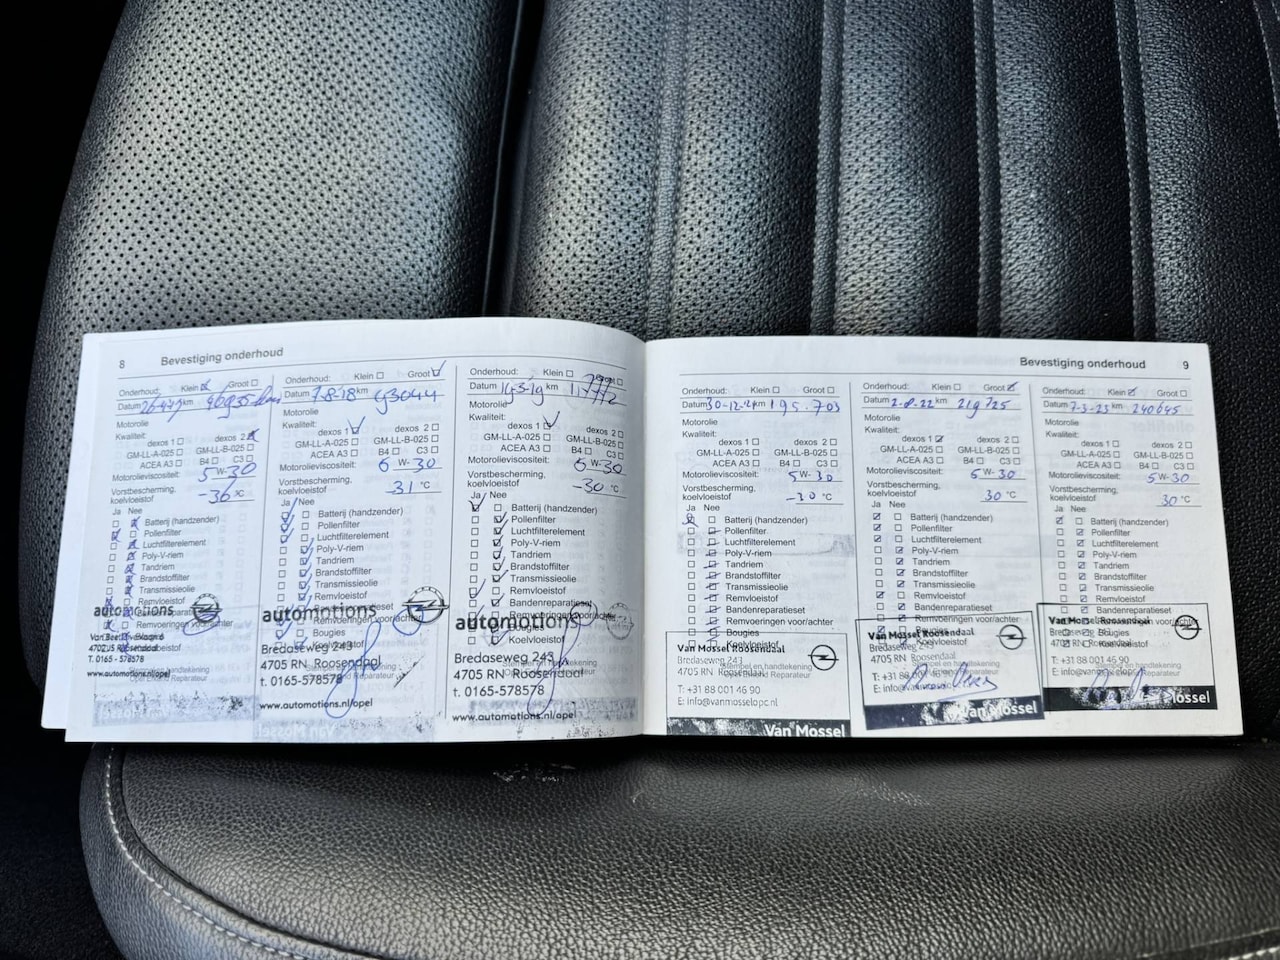 8 Bevestiging onderhoud
Onderhoud: Klein Groot
Datum km
Motorolie
Kwaliteit:
dexos 1 dexos 2
GM-LL-A-025 GM-LL-B-025
ACEA A3 B4 C3
Motorolieviscositeit: 5 W-30
Vorstbescherming,
koelvloeistof -36 °C
Ja Nee
Batterij (handzender)
Pollenfilter
Luchtfilterelement
Poly-V-riem
Tandriem
Brandstoffilter
Transmissieolie
Remvloeistof
automotions
Remvoeringen voor/achter
T. 0165 - 578578
www.automotions.nl/opel
Onderhoud: Klein Groot
Datum 7-8-'18 km 93044
Motorolie
Kwaliteit:
dexos 1 dexos 2
GM-LL-A-025 GM-LL-B-025
ACEA A3 B4 C3
Motorolieviscositeit: W-30
Vorstbescherming,
koelvloeistof -31 °C
Ja Nee
Batterij (handzender)
Pollenfilter
Luchtfilterelement
Poly-V-riem
Tandriem
Brandstoffilter
Transmissieolie
Remvloeistof
Bandenreparatieset
automotions
Remvoeringen voor/achter
Bougies
Koelvloeistof
Bredaseweg 243
4705 RN Roosendaal
t. 0165-578578
www.automotions.nl/opel
Onderhoud: Klein Groot
Datum km
Motorolie
Kwaliteit:
dexos 1 dexos 2
GM-LL-A-025 GM-LL-B-025
ACEA A3 B4 C3
Motorolieviscositeit: W-30
Vorstbescherming,
koelvloeistof -30 °C
Ja Nee
Batterij (handzender)
Pollenfilter
Luchtfilterelement
Poly-V-riem
Tandriem
Brandstoffilter
Transmissieolie
Remvloeistof
Bandenreparatieset
Remvoeringen voor/achter
automotions
Bougies
Koelvloeistof
Bredaseweg 243
4705 RN Roosendaal
t. 0165-578578
www.automotions.nl/opel
Bevestiging onderhoud 9
Onderhoud: Klein Groot
Datum 30-12-21 km 195.703
Motorolie
Kwaliteit:
dexos 1 dexos 2
GM-LL-A-025 GM-LL-B-025
ACEA A3 B4 C3
Motorolieviscositeit: 5 W-30
Vorstbescherming,
koelvloeistof -30 °C
Ja Nee
Batterij (handzender)
Pollenfilter
Luchtfilterelement
Poly-V-riem
Tandriem
Brandstoffilter
Transmissieolie
Remvloeistof
Bandenreparatieset
Remvoeringen voor/achter
Bougies
Koelvloeistof
Van Mossel Roosendaal
Bredaseweg 243
4705 RN Roosendaal
Stempel en handtekening
T: +31 88 001 46 90
E: info@vanmosselopc.nl
Van Mossel
Onderhoud: Klein Groot
Datum 2-8-22 km 219725
Motorolie
Kwaliteit:
dexos 1 dexos 2
GM-LL-A-025 GM-LL-B-025
ACEA A3 B4 C3
Motorolieviscositeit: 5 W-30
Vorstbescherming,
koelvloeistof 30 °C
Ja Nee
Batterij (handzender)
Pollenfilter
Luchtfilterelement
Poly-V-riem
Tandriem
Brandstoffilter
Transmissieolie
Remvloeistof
Bandenreparatieset
Remvoeringen voor/achter
Bougies
Koelvloeistof
Van Mossel Roosendaal
Bredaseweg 243
4705 RN Roosendaal
Van Mossel
Onderhoud: Klein Groot
Datum 7-3-23 km 240645
Motorolie
Kwaliteit:
dexos 1 dexos 2
GM-LL-A-025 GM-LL-B-025
ACEA A3 B4 C3
Motorolieviscositeit: 5 W-30
Vorstbescherming,
koelvloeistof 30 °C
Ja Nee
Batterij (handzender)
Pollenfilter
Luchtfilterelement
Poly-V-riem
Tandriem
Brandstoffilter
Transmissieolie
Remvloeistof
Bandenreparatieset
Van Mossel Roosendaal
Koelvloeistof
T: +31 88 001 46 90
Mossel